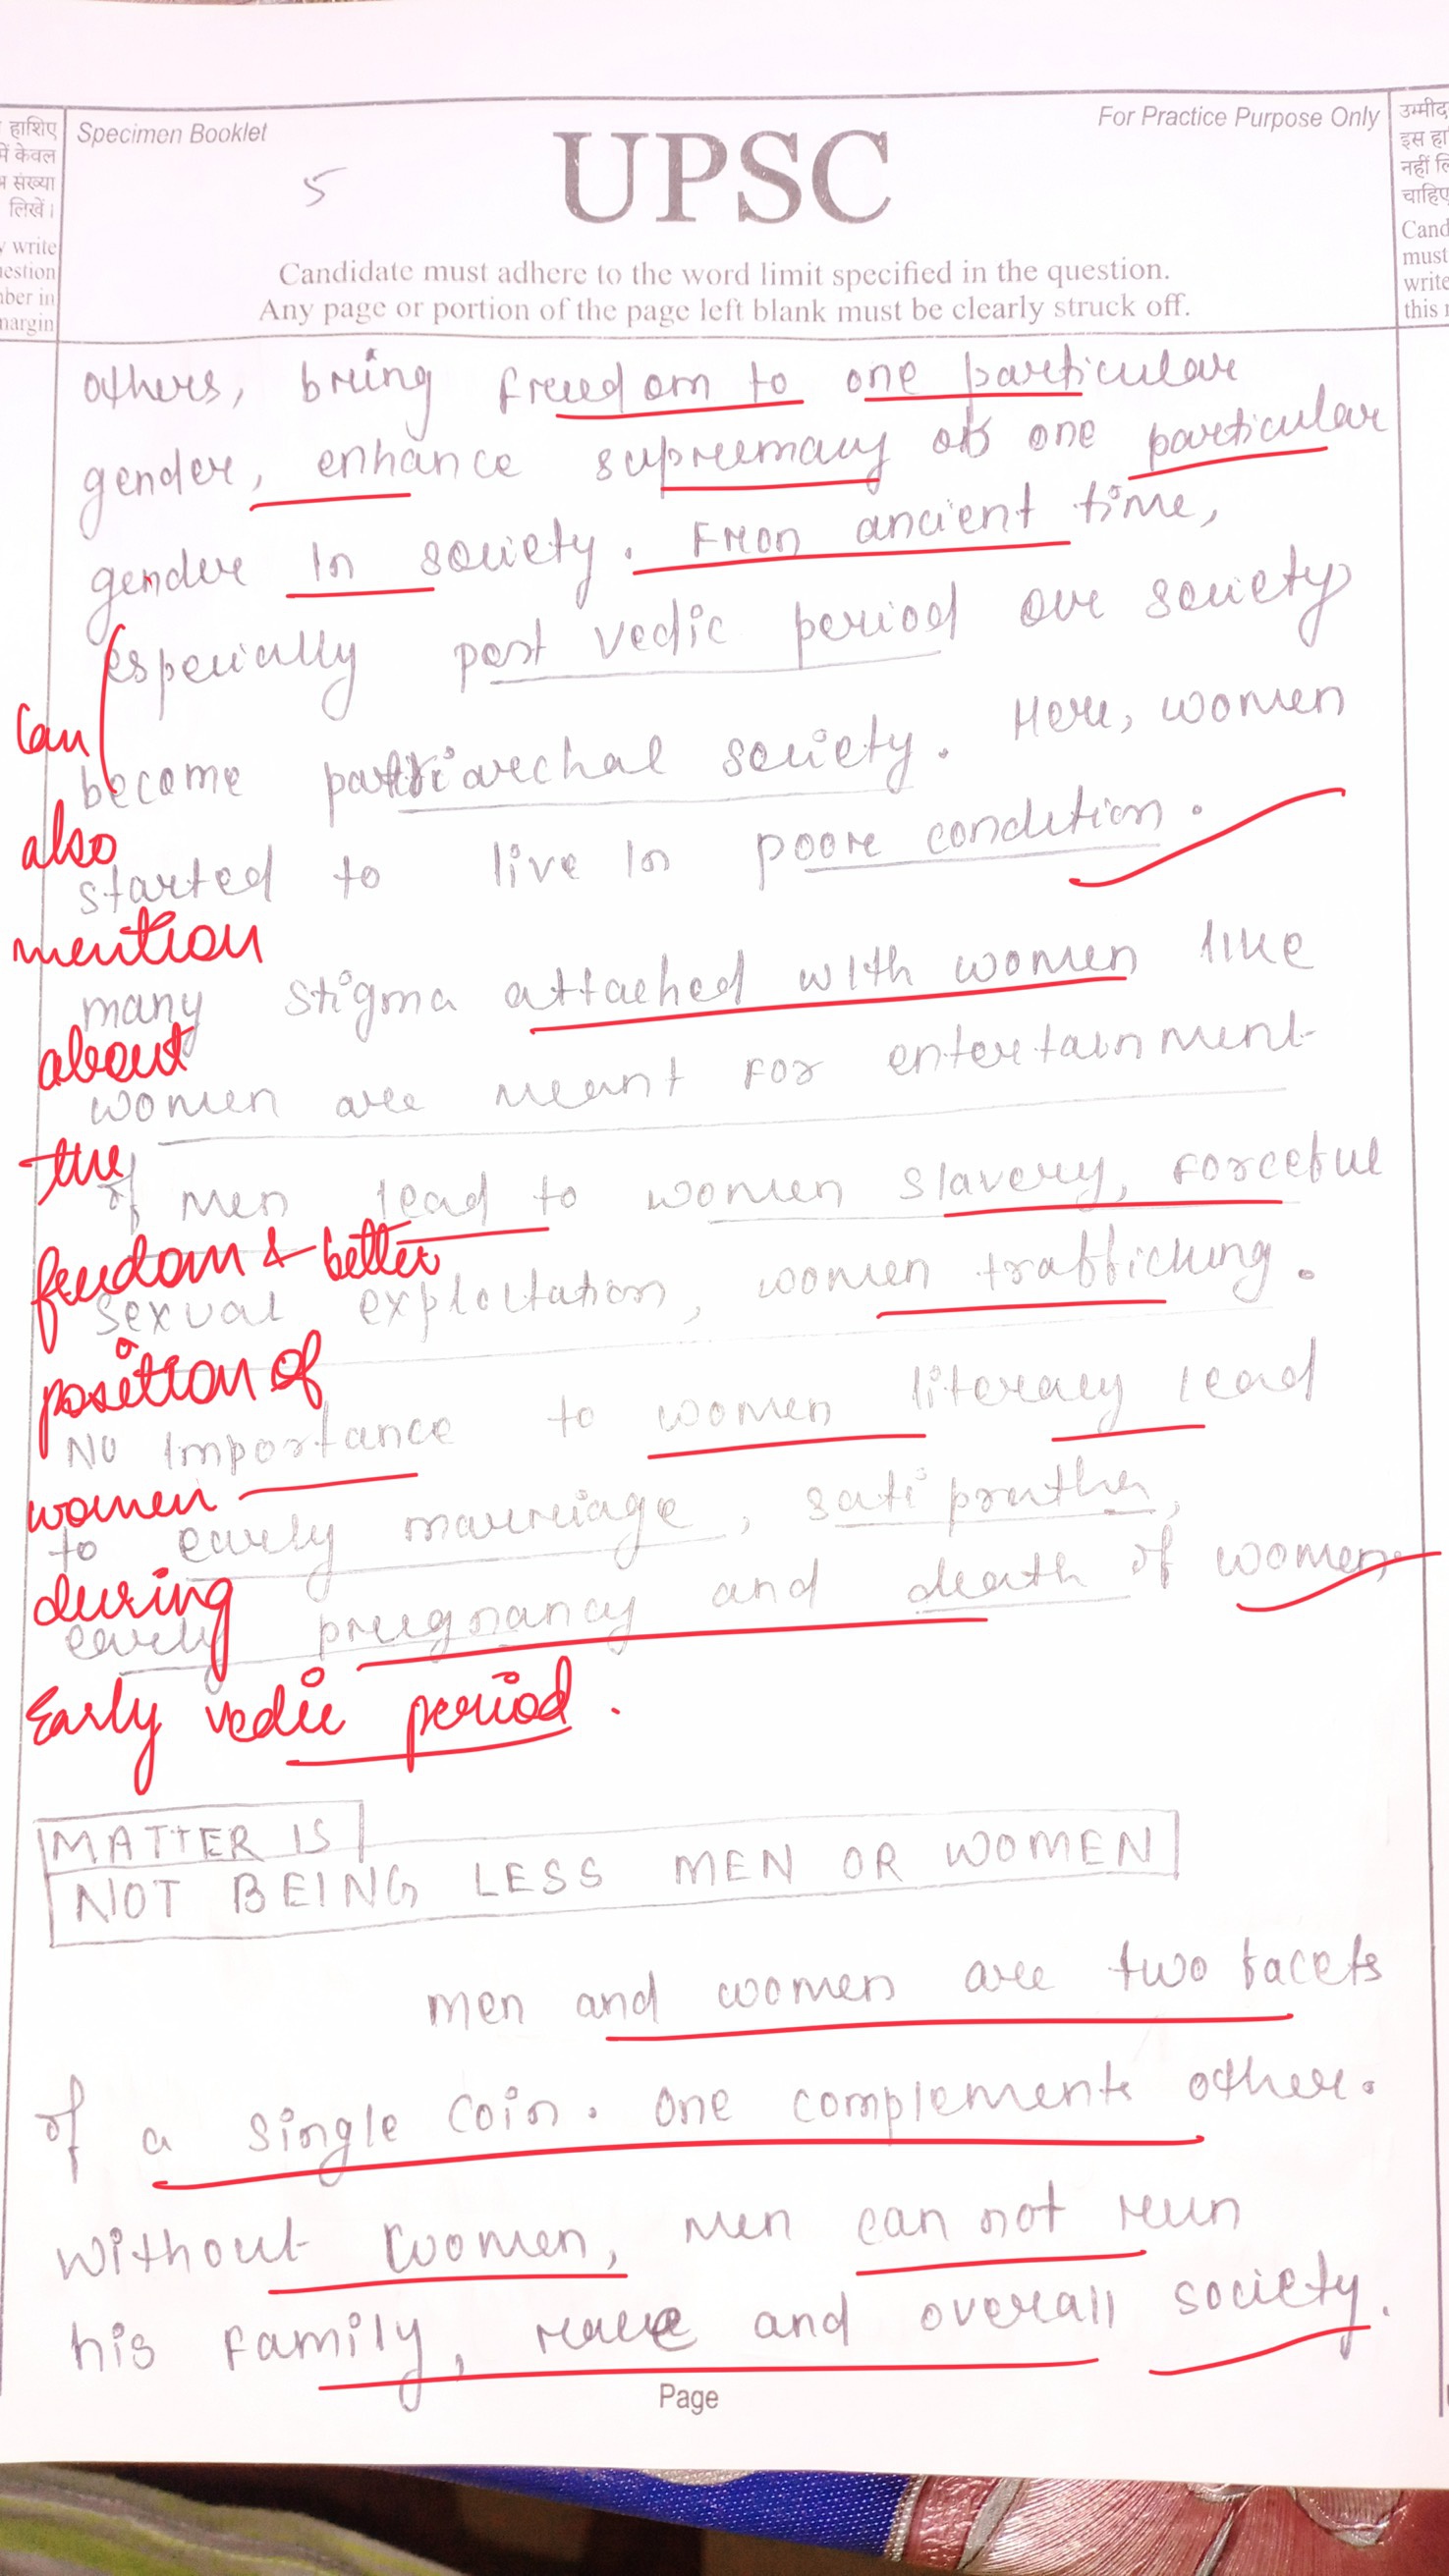 हाशिए
में केवल
संख्या
लिखें।
write
in
margin
Specimen Booklet
For Practice Purpose Only
5
UPSC
Candidate must adhere to the word limit specified in the question.
Any page or portion of the page left blank must be clearly struck off.
इस
नहीं
must
write
this
others, bring freedom to one particular
gender, enhance supremacy of one particular
gender in society. From ancient time,
especially post vedic period our society
become patriarchal society. Here, women
started to live in poor condition.
many stigma attached with women like
women are meant for entertainment
of men lead to women slavery, forceful
sexual exploitation, women trafficking.
No importance to women literacy lead
to early marriage, sati pratha,
early pregnancy and death of women.
Can
also
mention
about
the
freedom & better
position of
women
during
Early vedic period.
MATTER IS
NOT BEING LESS MEN OR WOMEN
men and women are two facets
of a single coin. One complements other.
without women, men can not run
his family, race and overall society.
Page